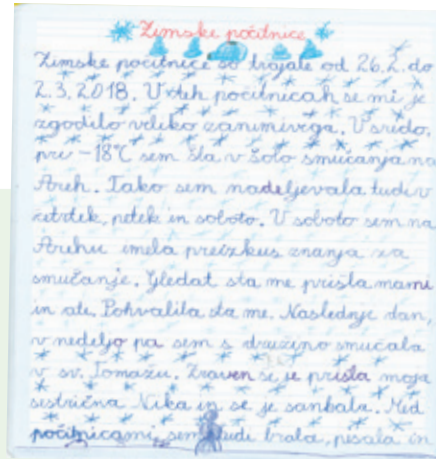 Zimske počitnice
Zimske počitnice so trajale od 26.2. do
2.3.2018. V teh počitnicah se mi je
zgodilo veliko zanimivega. V sredo,
pri -18°C sem šla v šolo smučanja na
Areh. Tako sem nadeljevala tudi v
četrtek, petek in soboto. V soboto sem na
Arehu imela preizkus znanja za
smučanje. Gledat sta me prišla mami
in ati. Pohvalila sta me. Naslednji dan,
v nedeljo pa sem s družino smučala
v sv. Tomažu. Zraven se je prišla moja
sestrična Nika in se je sankala. Med
počitnicami, sem tudi brala, pisala in